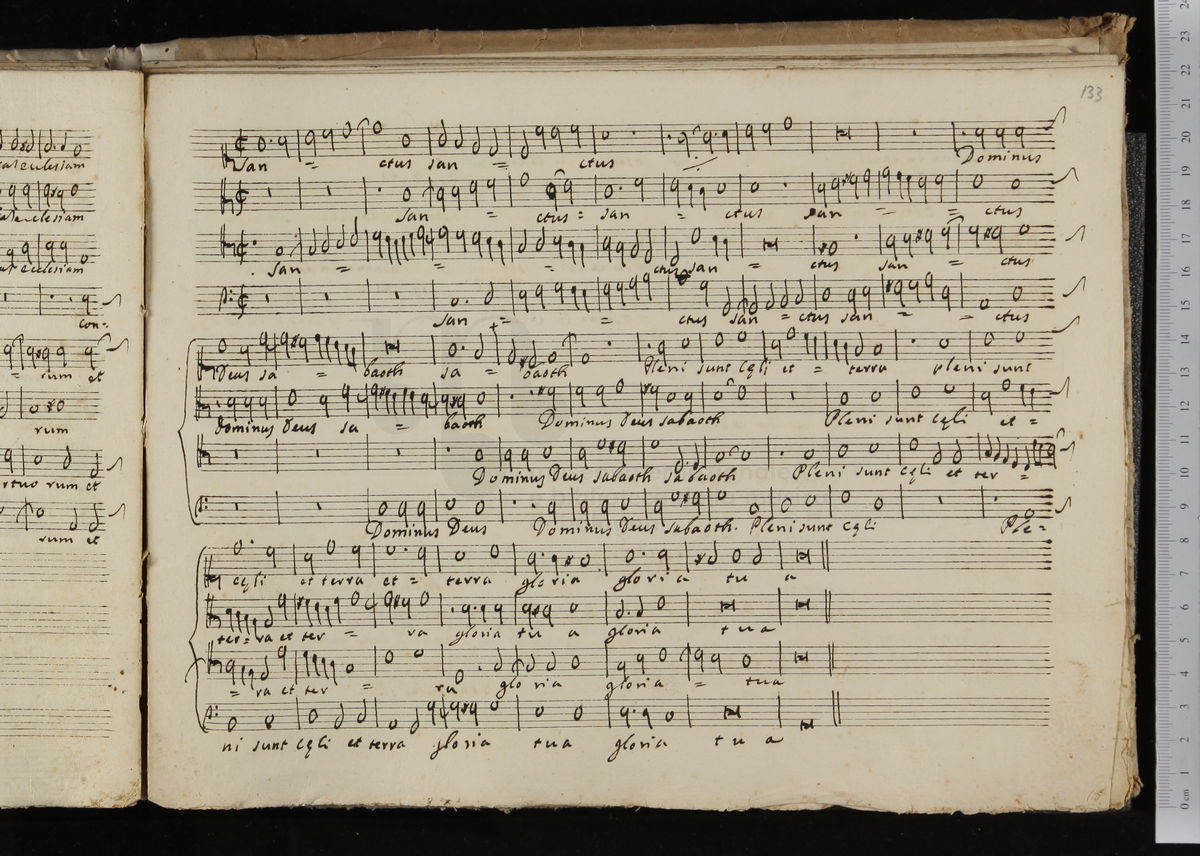 133
tatis ecclesiam
ecclesiam
ecclesiam
Con-
= rum et
rum
rum et
rum et
San = ctus San = ctus Dominus
San = ctus = San = ctus San = = ctus
San = = = ctus San = ctus San = ctus
San = = ctus San = ctus San = = ctus
Deus Sa = baoth Sa = baoth Pleni sunt Cęli et = terra pleni sunt
Dominus Deus Sa = baoth Dominus Deus Sabaoth Pleni sunt Cęli et =
Dominus Deus Sabaoth Sabaoth Pleni sunt Cęli et ter =
Dominus Deus Dominus Deus Sabaoth. Pleni sunt Cęli Ple=
cęli et terra et = terra gloria gloria tu a
ter = ra et ter = ra gloria tu a gloria tua
= ra et ter = ra glo ria gloria = tua
ni sunt Cęli et terra gloria tua gloria tu a